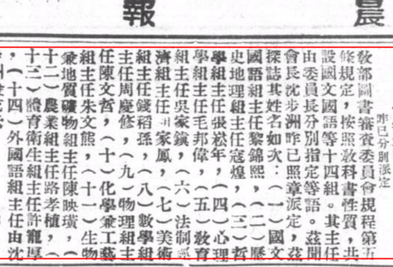 晨報
昨已分別派定
敎部圖書審查委員會規程第五
條規定，按照敎科書性質，共
設國文國語等十四組。其主任
由委員長分別指定等語。茲聞
會長沈步洲昨已照章派定，茲
探誌其姓名如次：（一）國文
國語組主任黎錦熙，（二）歷
史地理組主任寇煌，（三）哲
學組主任張崧年，（四）心理
學組主任毛邦偉，（五）敎育
組主任吳家鎮，（六）法制經
濟組主任家鳳，（七）美術
組主任錢稻孫，（八）數學組
主任周慶修，（九）物理組主
任陳文哲，（十）化學兼工藝
組主任朱文熊，（十一）生物
兼地質礦物組主任陳映璜，（
十二）農業組主任路孝植，（
十三）體育衛生組主任許寵厚
，（十四）外國語組主任由沈